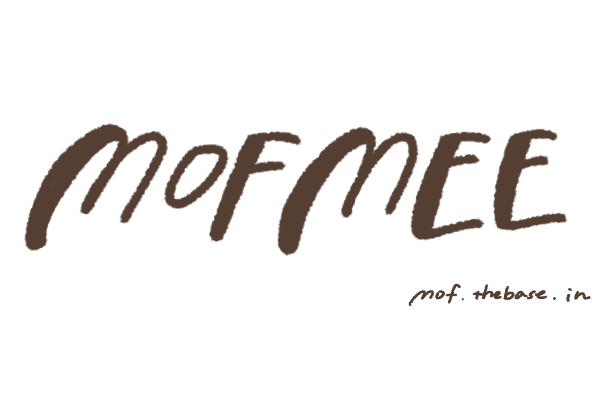 MOFMEE
mof.thebase.in